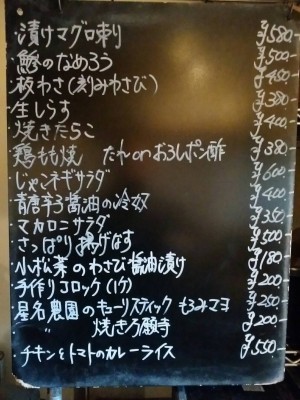 ・漬けマグロ刺り ¥580-
・鯵のなめろう ¥500-
・板わさ(刻みわさび) ¥450-
・生しらす ¥380-
・焼きたらこ ¥400-
・鶏もも焼 たれonおろしポン酢 ¥380
・じゃこネギサラダ ¥600
・青唐辛子醤油の冷奴 ¥400
・マカロニサラダ ¥350
・さっぱり揚げなす ¥500
・小松菜のわさび醤油漬け ¥180
・手作りコロッケ(1ケ) ¥200
・星名農園のキューリスティック もろみマヨ ¥250
・ 〃 焼きろ願寺 ¥200
・チキンとトマトのカレーライス ¥550-